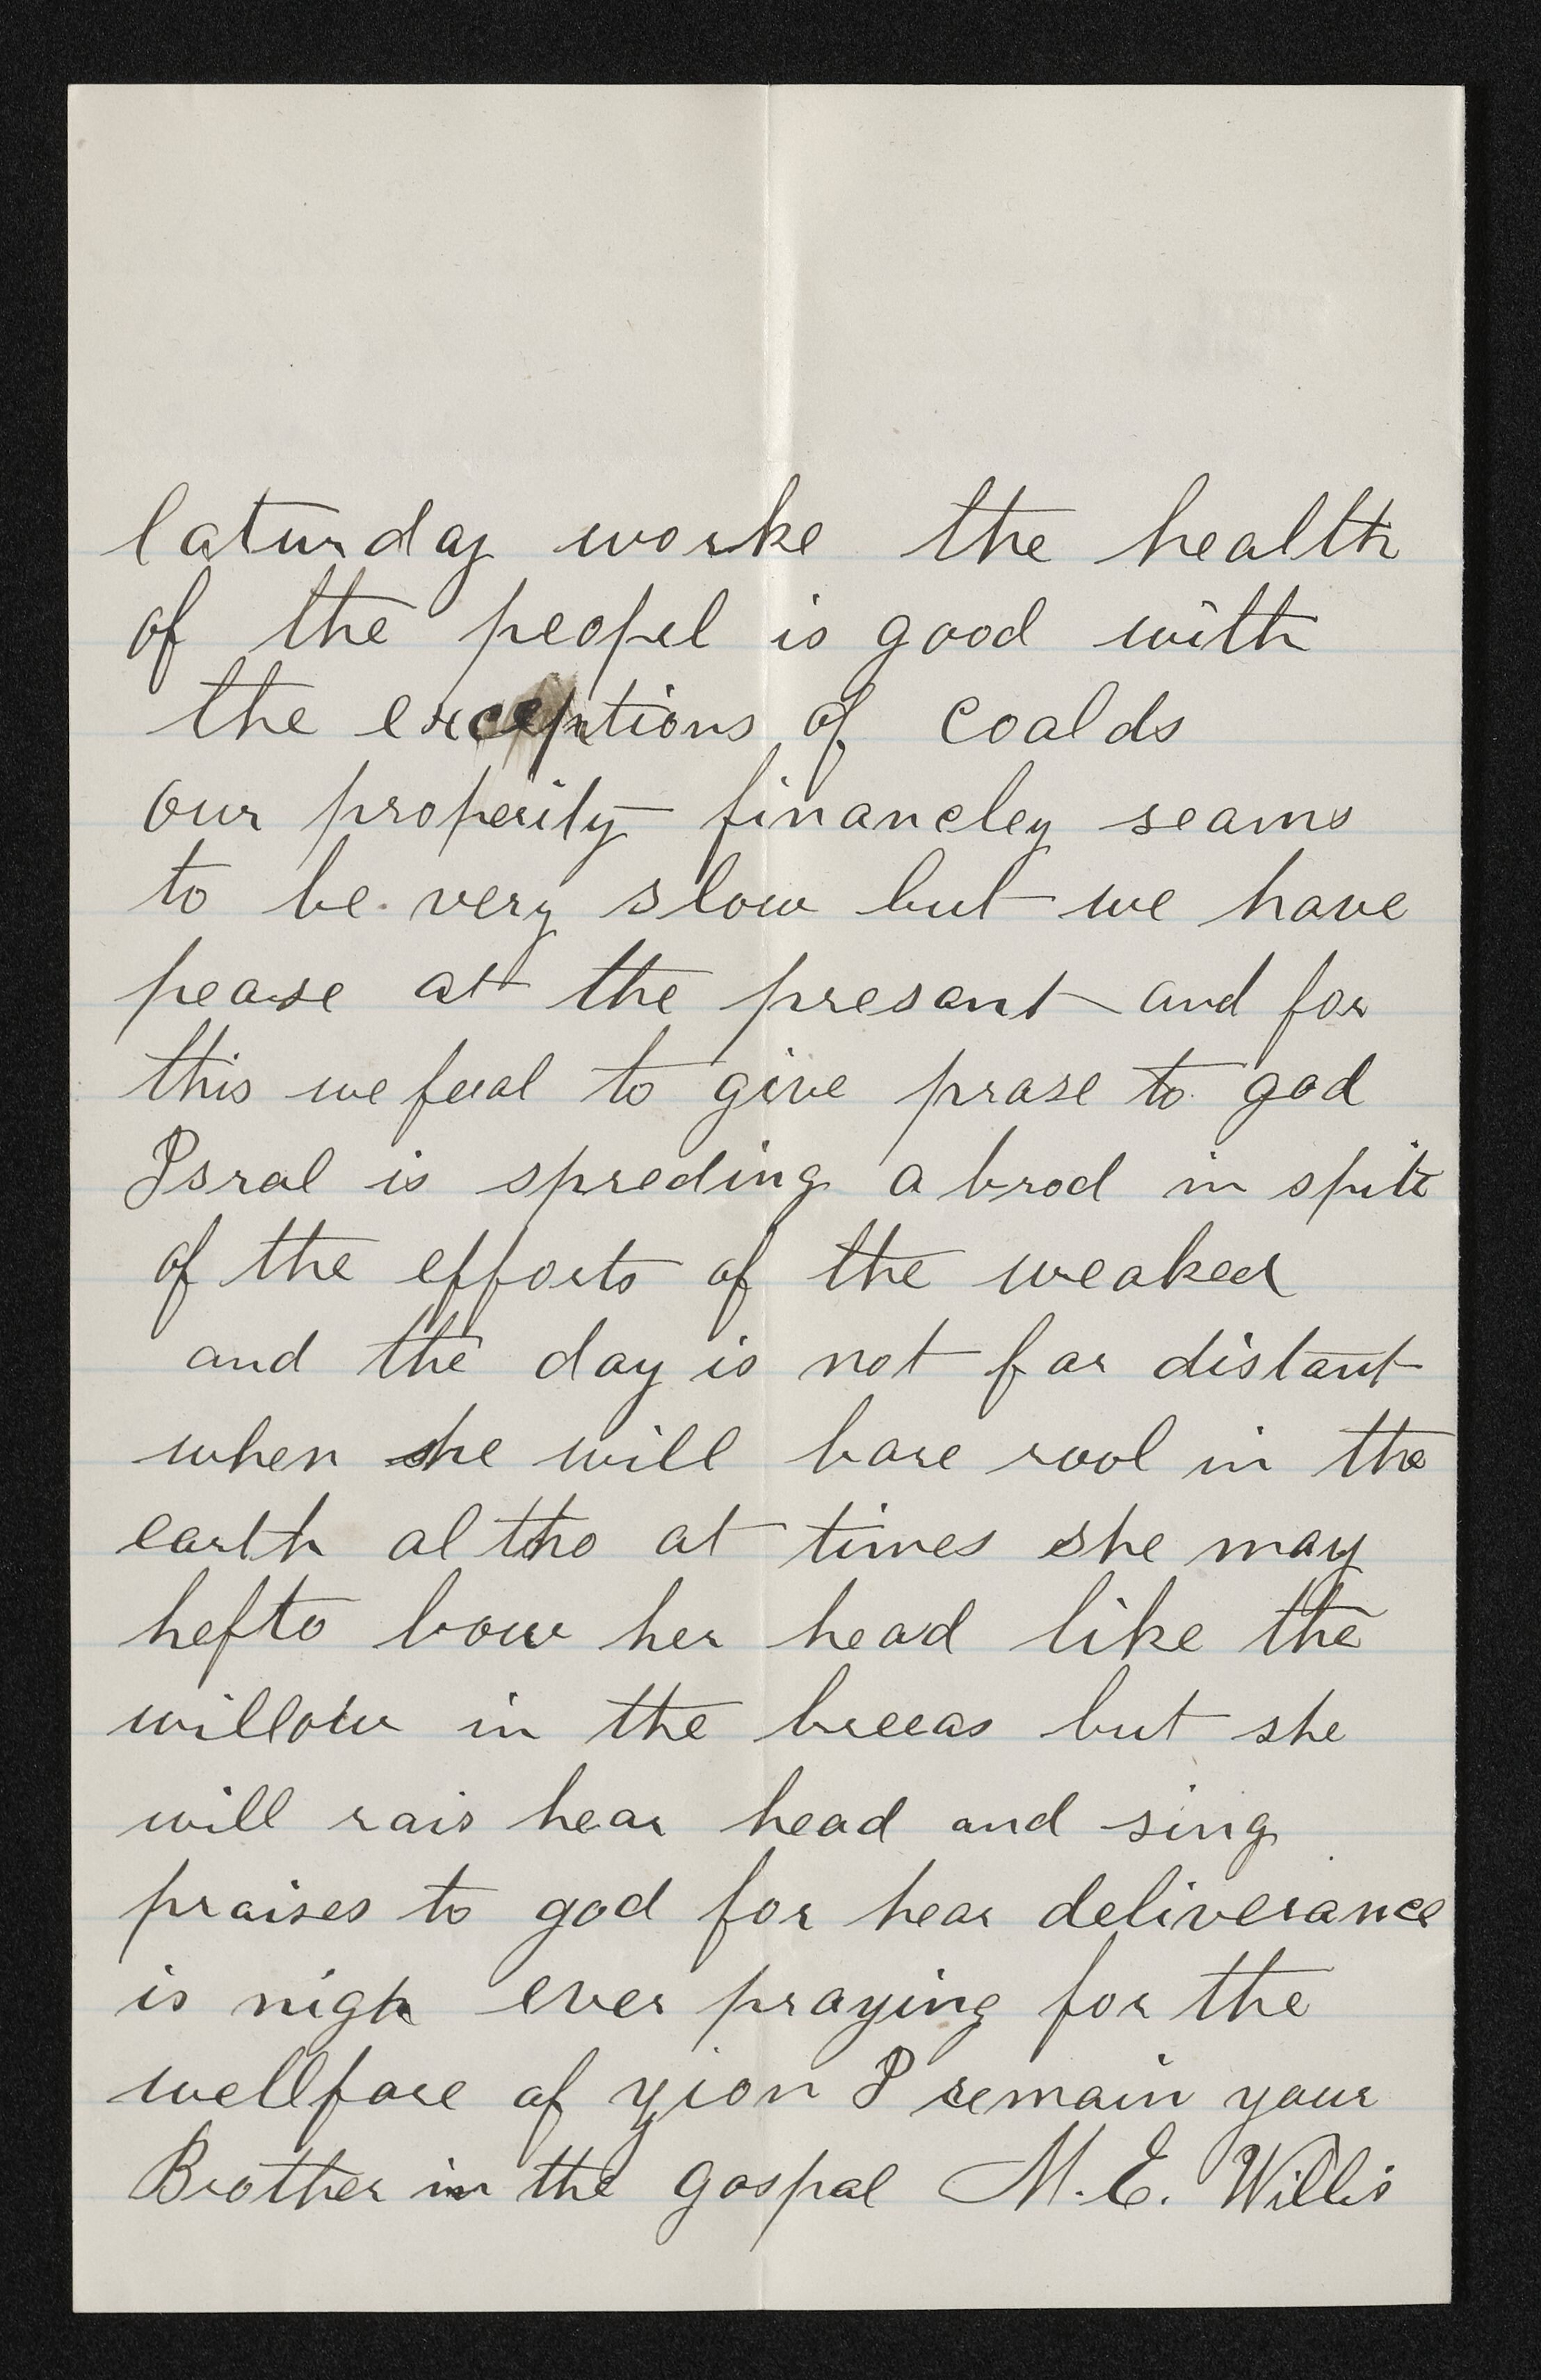 laturday worke the health
of the peopel is good with
the exceptions of coalds
our properity financley seams
to be very slow but we have
pease at the presant and for
this we feal to give prase to god
Isral is spreding a brod in spite
of the efforts of the weaked
and the day is not far distant
when she will bare rool in the
earth al tho at times she may
hefto bow her head like the
willow in the breeas but she
will rais hear head and sing
praises to god for hear deliverance
is nigh ever praying for the
wellfare of zion I remain your
Brother in the gospal M. E. Willis